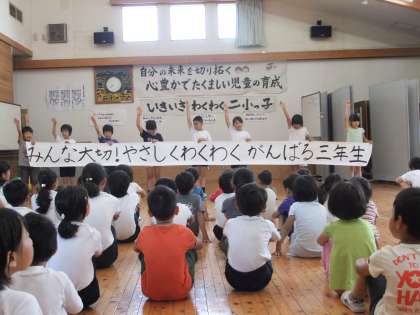 自分の未来を切り拓く
心豊かでたくましい児童の育成
いきいきわくわく二小っ子
みんな大切!やさしくわくわくがんばる三年生